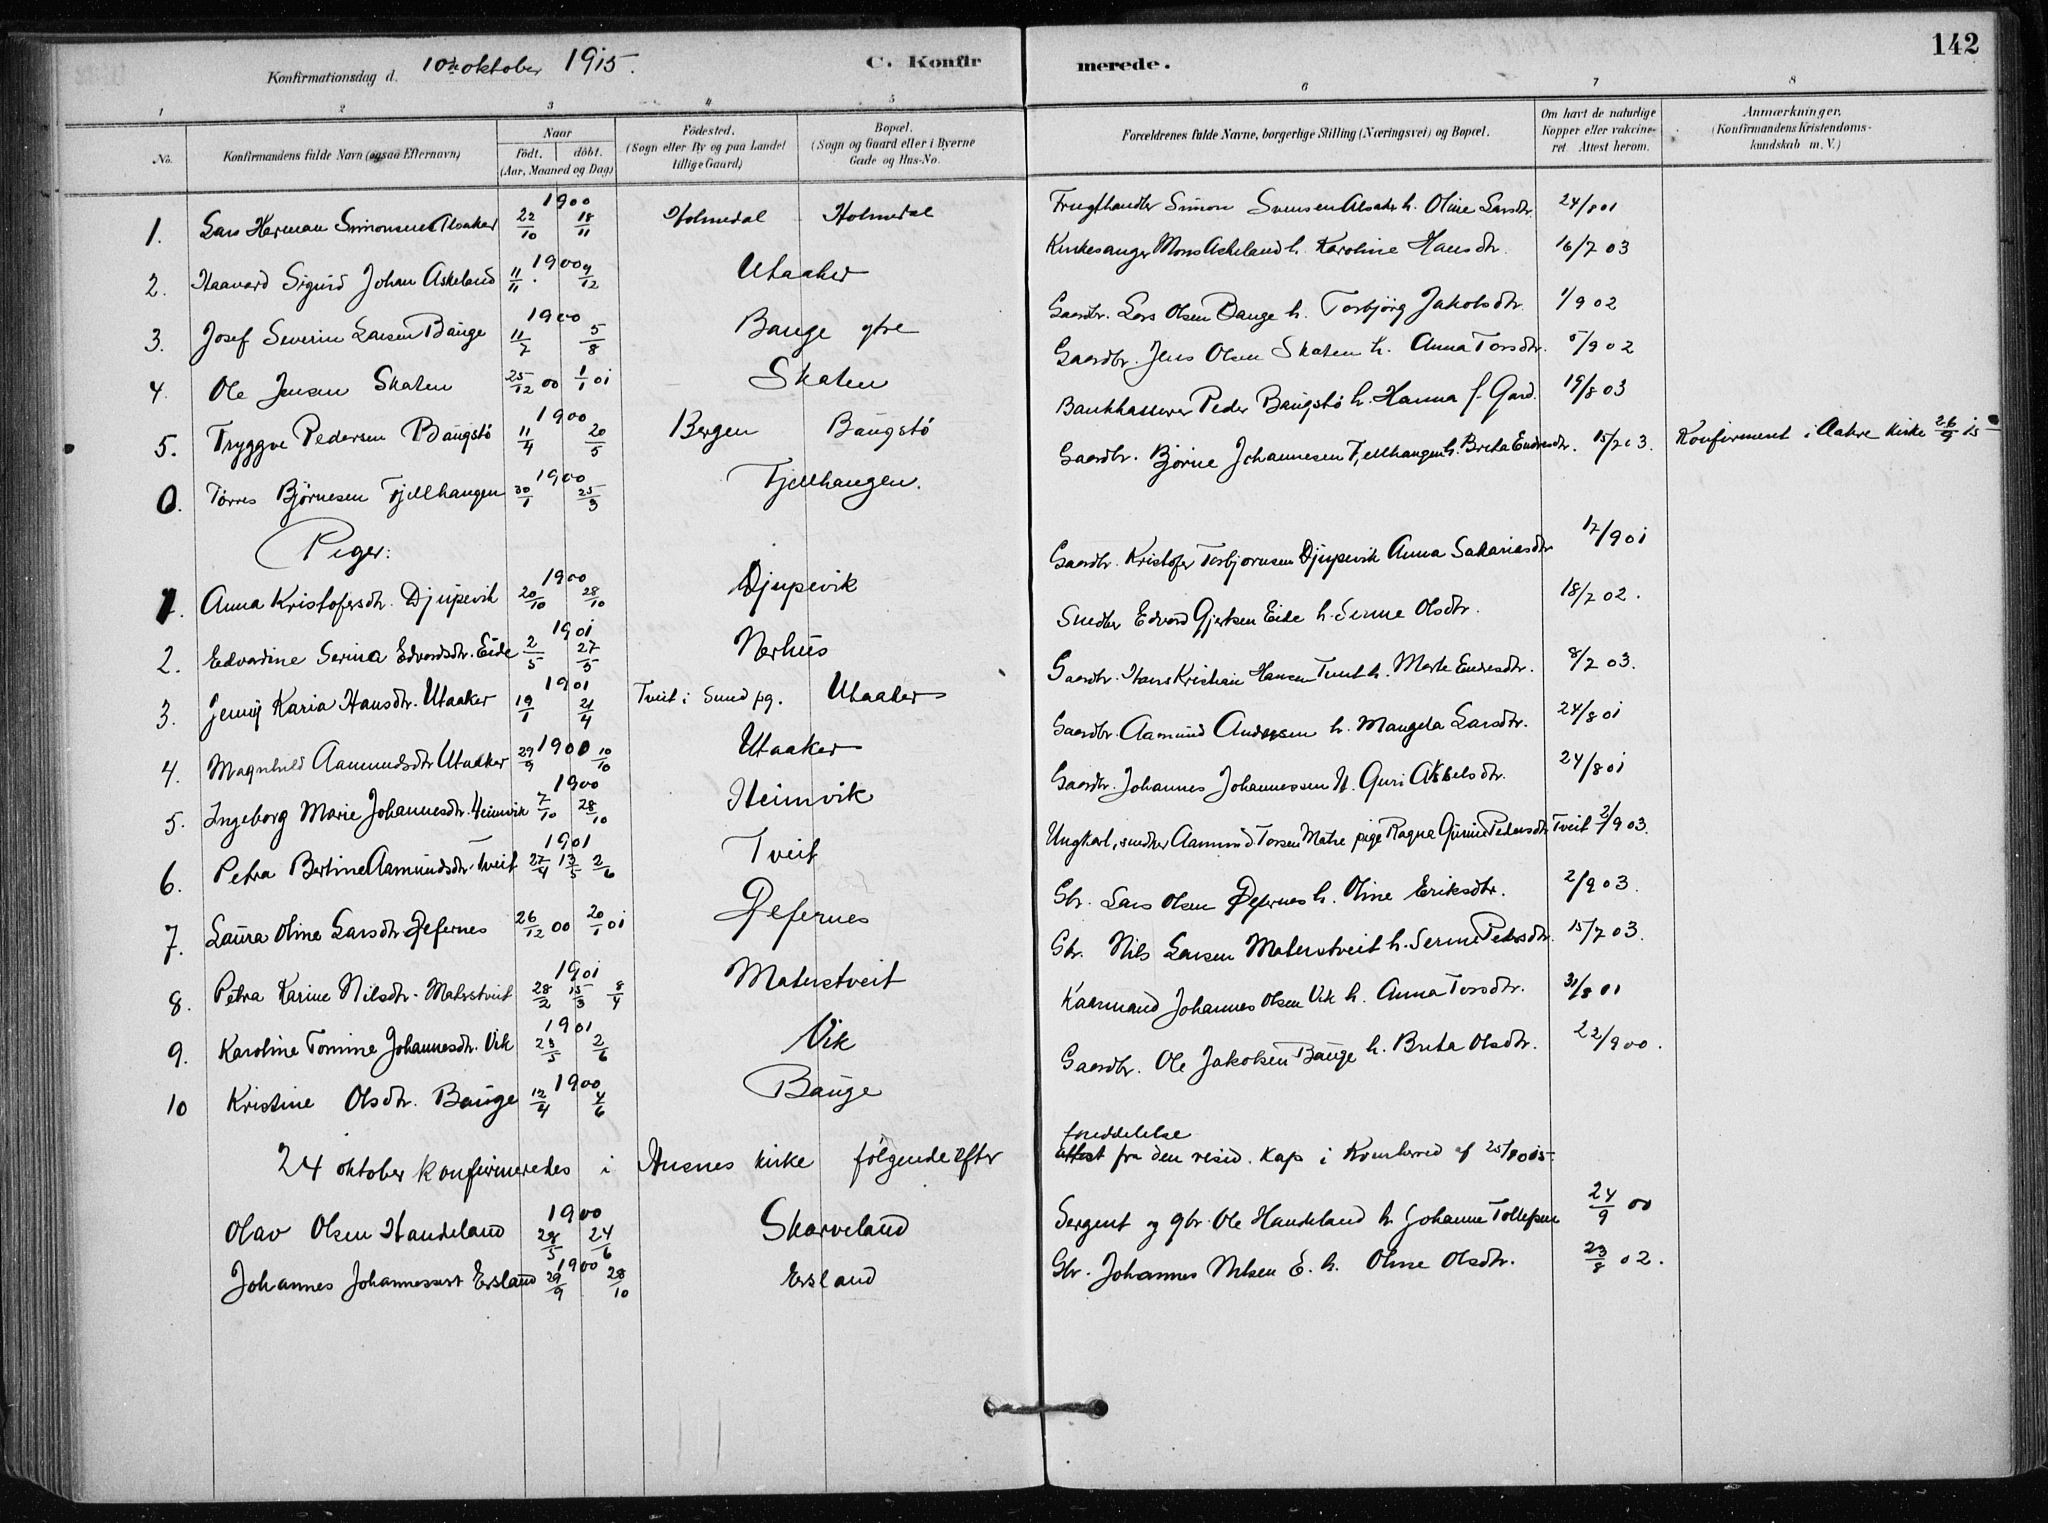 142
Konfirmationsdag d. 10de oktober 1915.
C. Konfirmerede.
1 2 3 4 5 6 7 8
No. Konfirmandens fulde Navn (ogsaa Efternavn) Naar født. døbt. (Aar, Maaned og Dag) Födested. (Sogn eller By og paa Landet tillige Gaard) Bopæl. (Sogn og Gaard eller i Byerne Gade og Hus-No. Forældrenes fulde Navne, borgerlige Stilling (Næringsvei) og Bopæl. Om havt de naturlige Kopper eller vakcineret. Attest herom. Anmærkninger. (Konfirmandens Kristendomskundskab m. V.)
1. Lars Herman Simonsen Alsaker 1900 22/10 18/11 Holmedal Holmedal Frugthandler Simon Svensen Alsaker h. Oline Larsdtr. 24/8 01
2. Haavard Sigurd Johan Askeland 1900 11/11 9/12 Utaaker Kirkesanger Mons Askeland h. Karoline Hansdtr. 16/7 03
3. Josef Severin Larsen Bauge 1900 11/7 5/8 Bauge ytre Gaardbr. Lars Olsen Bauge h. Torbjörg Jakobsdtr. 1/9 02
4. Ole Jensen Skaten 25/12 00 1/1 01 Skaten Gaardbr. Jens Olsen Skaten h. Anna Torsdtr. 5/9 02
5. Tryggve Pedersen Baugstø 1900 11/4 20/5 Bergen Baugstø Bankkasserer Peder Baugstø h. Hanna f. Gard. 19/8 03
6. Tørres Bjørnesen Fjellhaugen 1900 30/1 25/3 Fjellhaugen. Gaardbr. Bjørne Johannesen Fjellhaugen h. Brita Endresdtr. 15/7 03. Konfirmert i Aakre kirke 26/9 15
Piger:
1. Anna Kristofersdtr. Djupevik 1900 20/10 28/10 Djupevik Gaardbr. Kristofer Torbjørnsen Djupevik Anna Sakariasdtr 17/9 01
2. Edvardine Serina Edvardsdtr. Eide 1901 2/5 27/5 Nerhus Snedker Edvard Gjertsen Eide h. Serine Olsdtr. 18/7 02.
3. Jenny Karia Hansdtr. Utaaker 1901 19/1 21/4 Tveit i Sund pg. Utaaker Gaardbr. Hans Kristian Hansen Tveit h. Marte Endresdtr. 8/7 03.
4. Magnhild Aamundsdtr Utaaker 1900 29/9 10/10 Utaaker Gaardbr. Aamund Andersen h. Mangela Larsdtr. 24/8 01
5. Ingeborg Marie Johannesdtr. Heimvik 1900 7/10 28/10 Heimvik Gaardbr. Johannes Johannessen H. Guri Akselsdtr. 24/8 01
6. Petra Bertine Aamundsdtr. Tveit 1901 27/4 13/5 2/6 Tveit Ungkarl, snedker Aamund Torsen Matre pige Ragna Gurine Pedersdtr. Tveit 2/9 03.
7. Laura Oline Larsdtr. Øfernes 26/12 00 20/1 01 Øfernes Gbr. Lars Olsen Øfernes h. Oline Eriksdtr. 2/9 03.
8. Petra Karine Nilsdtr. Matrstveit 1901 28/2 15/3 8/4 Materstveit Gbr. Nils Larsen Materstveit h. Serine Petersdtr. 15/7 03.
9. Karoline Tomine Johannesdtr. Vik 1901 23/5 2/6 Vik Kaarmand Johannes Olsen Vik h. Anna Torsdtr. 31/8 01
10 Kristine Olsdtr. Bauge 1900 12/4 4/6 Bauge Gaardbr. Ole Jakobsen Bauge h. Brita Olsdtr. 22/9 00.
24 oktober konfirmeredes i Husnes kirke følgende efter meddelelse attest fra den resid. Kap i Kvinherred af 25/10 015.
Olav Olsen Handeland 1900 28/5 24/6 Skarveland Sergent og gbr. Ole Handeland h. Johanne Tollefsen 24/9 00
Johannes Johannessen Ersland 1900 29/9 28/10 Ersland Gbr. Johannes Nilsen E. h. Oline Olsdtr. 23/8 02.